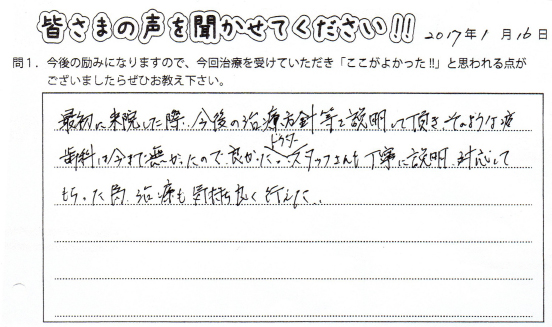 皆さまの声を聞かせてください!!
2017年1月16日
問1．今後の励みになりますので、今回治療を受けていただき「ここがよかった!!」と思われる点が
ございましたらぜひお教え下さい。
最初に来院した際、今後の治療方針等を説明して頂き、そのような
ドクター
歯科は今まで無かったので良かった。スタッフさんも丁寧に説明、対応して
もらった為、治療も気持良く行えた。